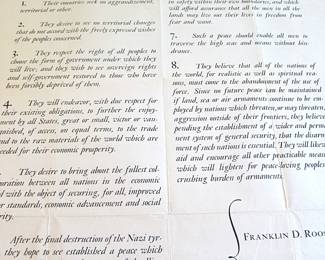 1. Their countries seek no aggrandizement,
territorial or other.
2. They desire to see no territorial changes
that do not accord with the freely expressed wishes
of the peoples concerned.
3. They respect the right of all peoples to
chose the form of government under which they
will live; and they wish to see sovereign rights
and self-government restored to those who have
been forcibly deprived of them.
4. They will endeavor, with due respect for
their existing obligations, to further the enjoy-
ment by all States, great or small, victor or van-
quished, of access, on equal terms, to the trade
nd to the raw materials of the world which are
eeded for their economic prosperity.
They desire to bring about the fullest col-
boration between all nations in the economic
d with the object of securing, for all, improved
r standards, economic advancement and social
rity.
After the final destruction of the Nazi tyr-
they hope to see established a peace which
in safety within their own boundaries, and which
will afford assurance that all the men in all the
lands may live out their lives in freedom from
fear and want.
7. Such a peace should enable all men to
traverse the high seas and oceans without hin-
drance.
8. They believe that all of the nations of
the world, for realistic as well as spiritual rea-
sons, must come to the abandonment of the use of
force. Since no future peace can be maintained
if land, sea or air armaments continue to be em-
ployed by nations which threaten, or may threaten,
aggression outside of their frontiers, they believe,
pending the establishment of a wider and perma-
nent system of general security, that the disarm
ment of such nations is essential. They will likew
aid and encourage all other practicable meas
which will lighten for peace-loving peoples
crushing burden of armaments.
FRANKLIN D. ROOS